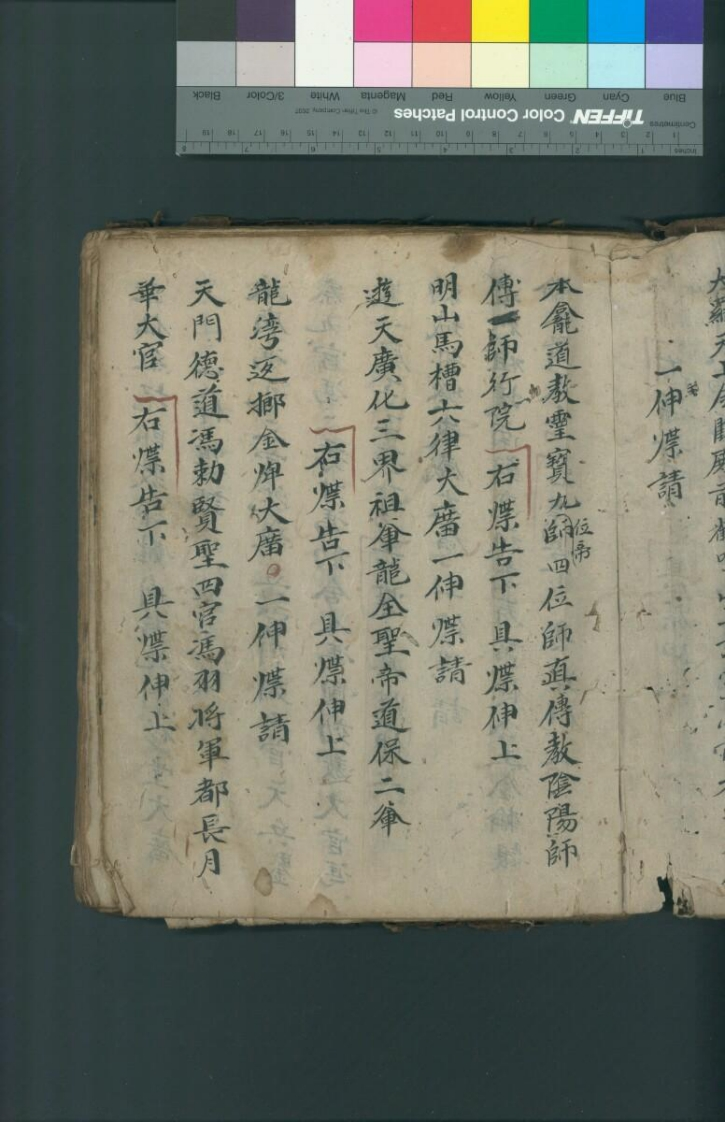 一伸牒請
本龕道教靈寶九師四位師真傳教陰陽師
位帝
傳一師行院 右牒告下 具牒伸上
明山馬槽六律大廣一伸牒請
遊天廣化三界祖爺龍全聖帝道保二爺
右牒告下 具牒伸上
龍湾 金 大廣 一伸牒請
天門德道馮勅賢聖四官馮羽將軍都長月
華大官 右牒告下 具牒伸上
Blue Cyan Green Yellow Red Magenta White 3/Color Black
TIFFEN Color Control Patches
© The Tiffen Company, 2007
Centimetres
Inches